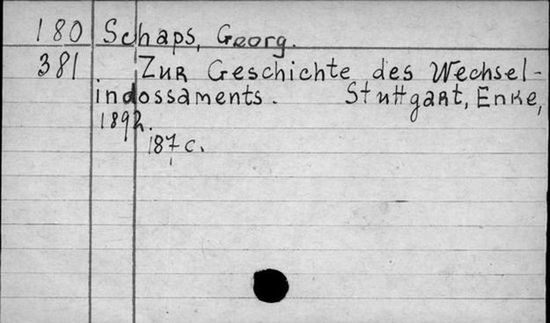 180 Schaps, Georg.
381 Zur Geschichte des Wechsel-
indossaments. Stuttgart, Enke,
1892.
187 c.